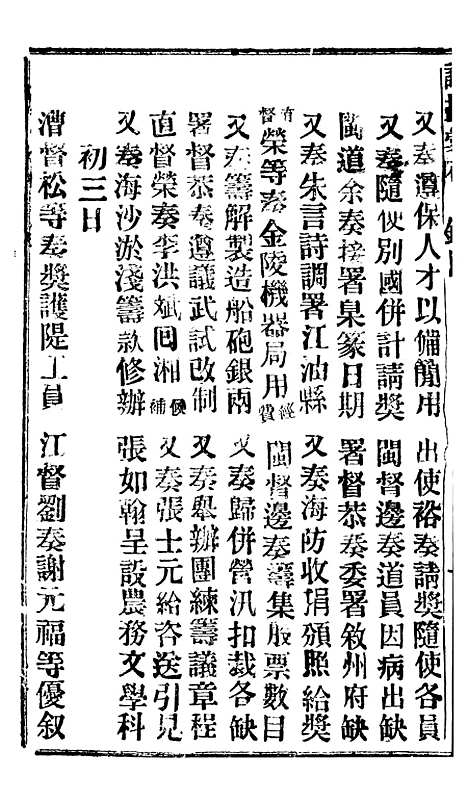 又奏遵保人才以備簡用　出使裕奏請獎隨使各員
又奏隨使別國併計請獎　閩督邊奏道員因病出缺
閩道余奏接署臬篆日期　署督恭奏委署敘州府缺
又奏朱言詩調署江油縣　又奏海防收捐頒照給獎
督榮等奏金陵機器局用經費　閩督邊奏籌集股票數目
又奏籌解製造船砲銀兩　又奏歸併營汛扣裁各缺
署督恭奏遵議武試改制　又奏舉辦團練籌議章程
直督榮奏李洪斌回湘候補　又奏張士元給咨送引見
又奏海沙淤淺籌款修辦　張如翰呈設農務文學科
初三日
漕督松等奏獎護隄工員　江督劉奏謝元福等優叙